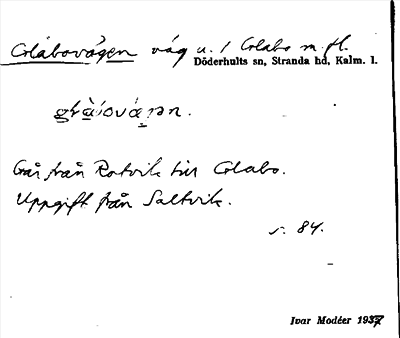 Glabovägen väg u. / Glabo m. fl.
Döderhults sn, Stranda hd, Kalm. l.
Går från Rotvik till Glabo.
Uppgift från Saltvik.
s. 84.
Ivar Modéer 1937